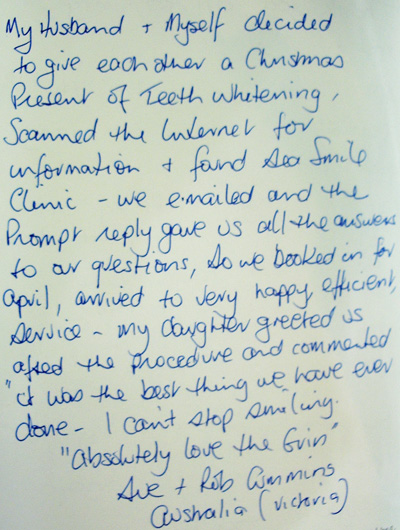 My Husband + Myself decided
to give each other a Christmas
Present of Teeth Whitening,
Scanned the Internet for
information + found Sea Smile
Clinic - we emailed and the
Prompt reply gave us all the answers
to our questions, so we booked in for
April, arrived to very happy, efficient,
service - my daughter greeted us
after the procedure and commented
"it was the best thing we have ever
done - I can't stop smiling.
"absolutely love the Grin"
+ Rob Cummins
Australia (Victoria)